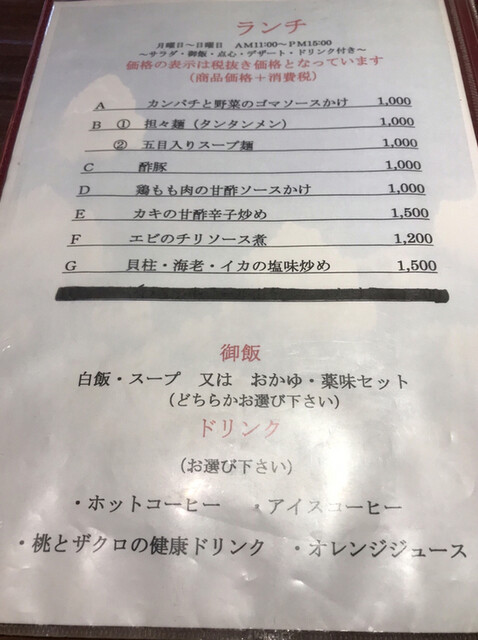 ランチ
月曜日～日曜日　AM11:00～PM15:00
～サラダ・御飯・点心・デザート・ドリンク付き～
価格の表示は税抜き価格となっています
（商品価格＋消費税）
A　カンパチと野菜のゴマソースかけ　1,000
B　①　担々麺（タンタンメン）　1,000
②　五目入りスープ麺　1,000
C　酢豚　1,000
D　鶏もも肉の甘酢ソースかけ　1,000
E　カキの甘酢辛子炒め　1,500
F　エビのチリソース煮　1,200
G　貝柱・海老・イカの塩味炒め　1,500
御飯
白飯・スープ　又は　おかゆ・薬味セット
（どちらかお選び下さい）
ドリンク
（お選び下さい）
・ホットコーヒー　・アイスコーヒー
・桃とザクロの健康ドリンク　・オレンジジュース